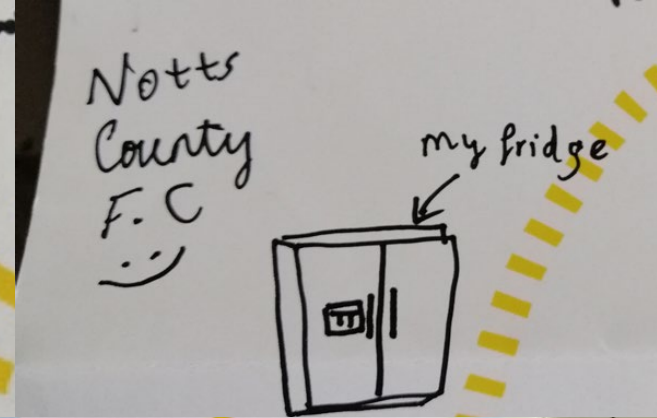 Notts
County
F.C
my fridge